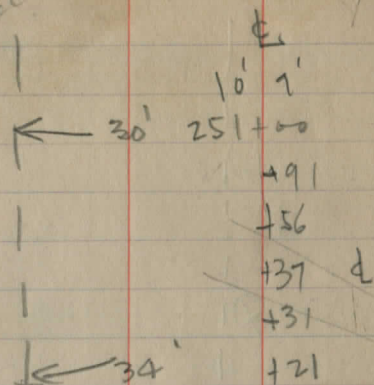 ℄
10' 9'
30' 251+00
+91
+56
+37 d
+31
34' +21